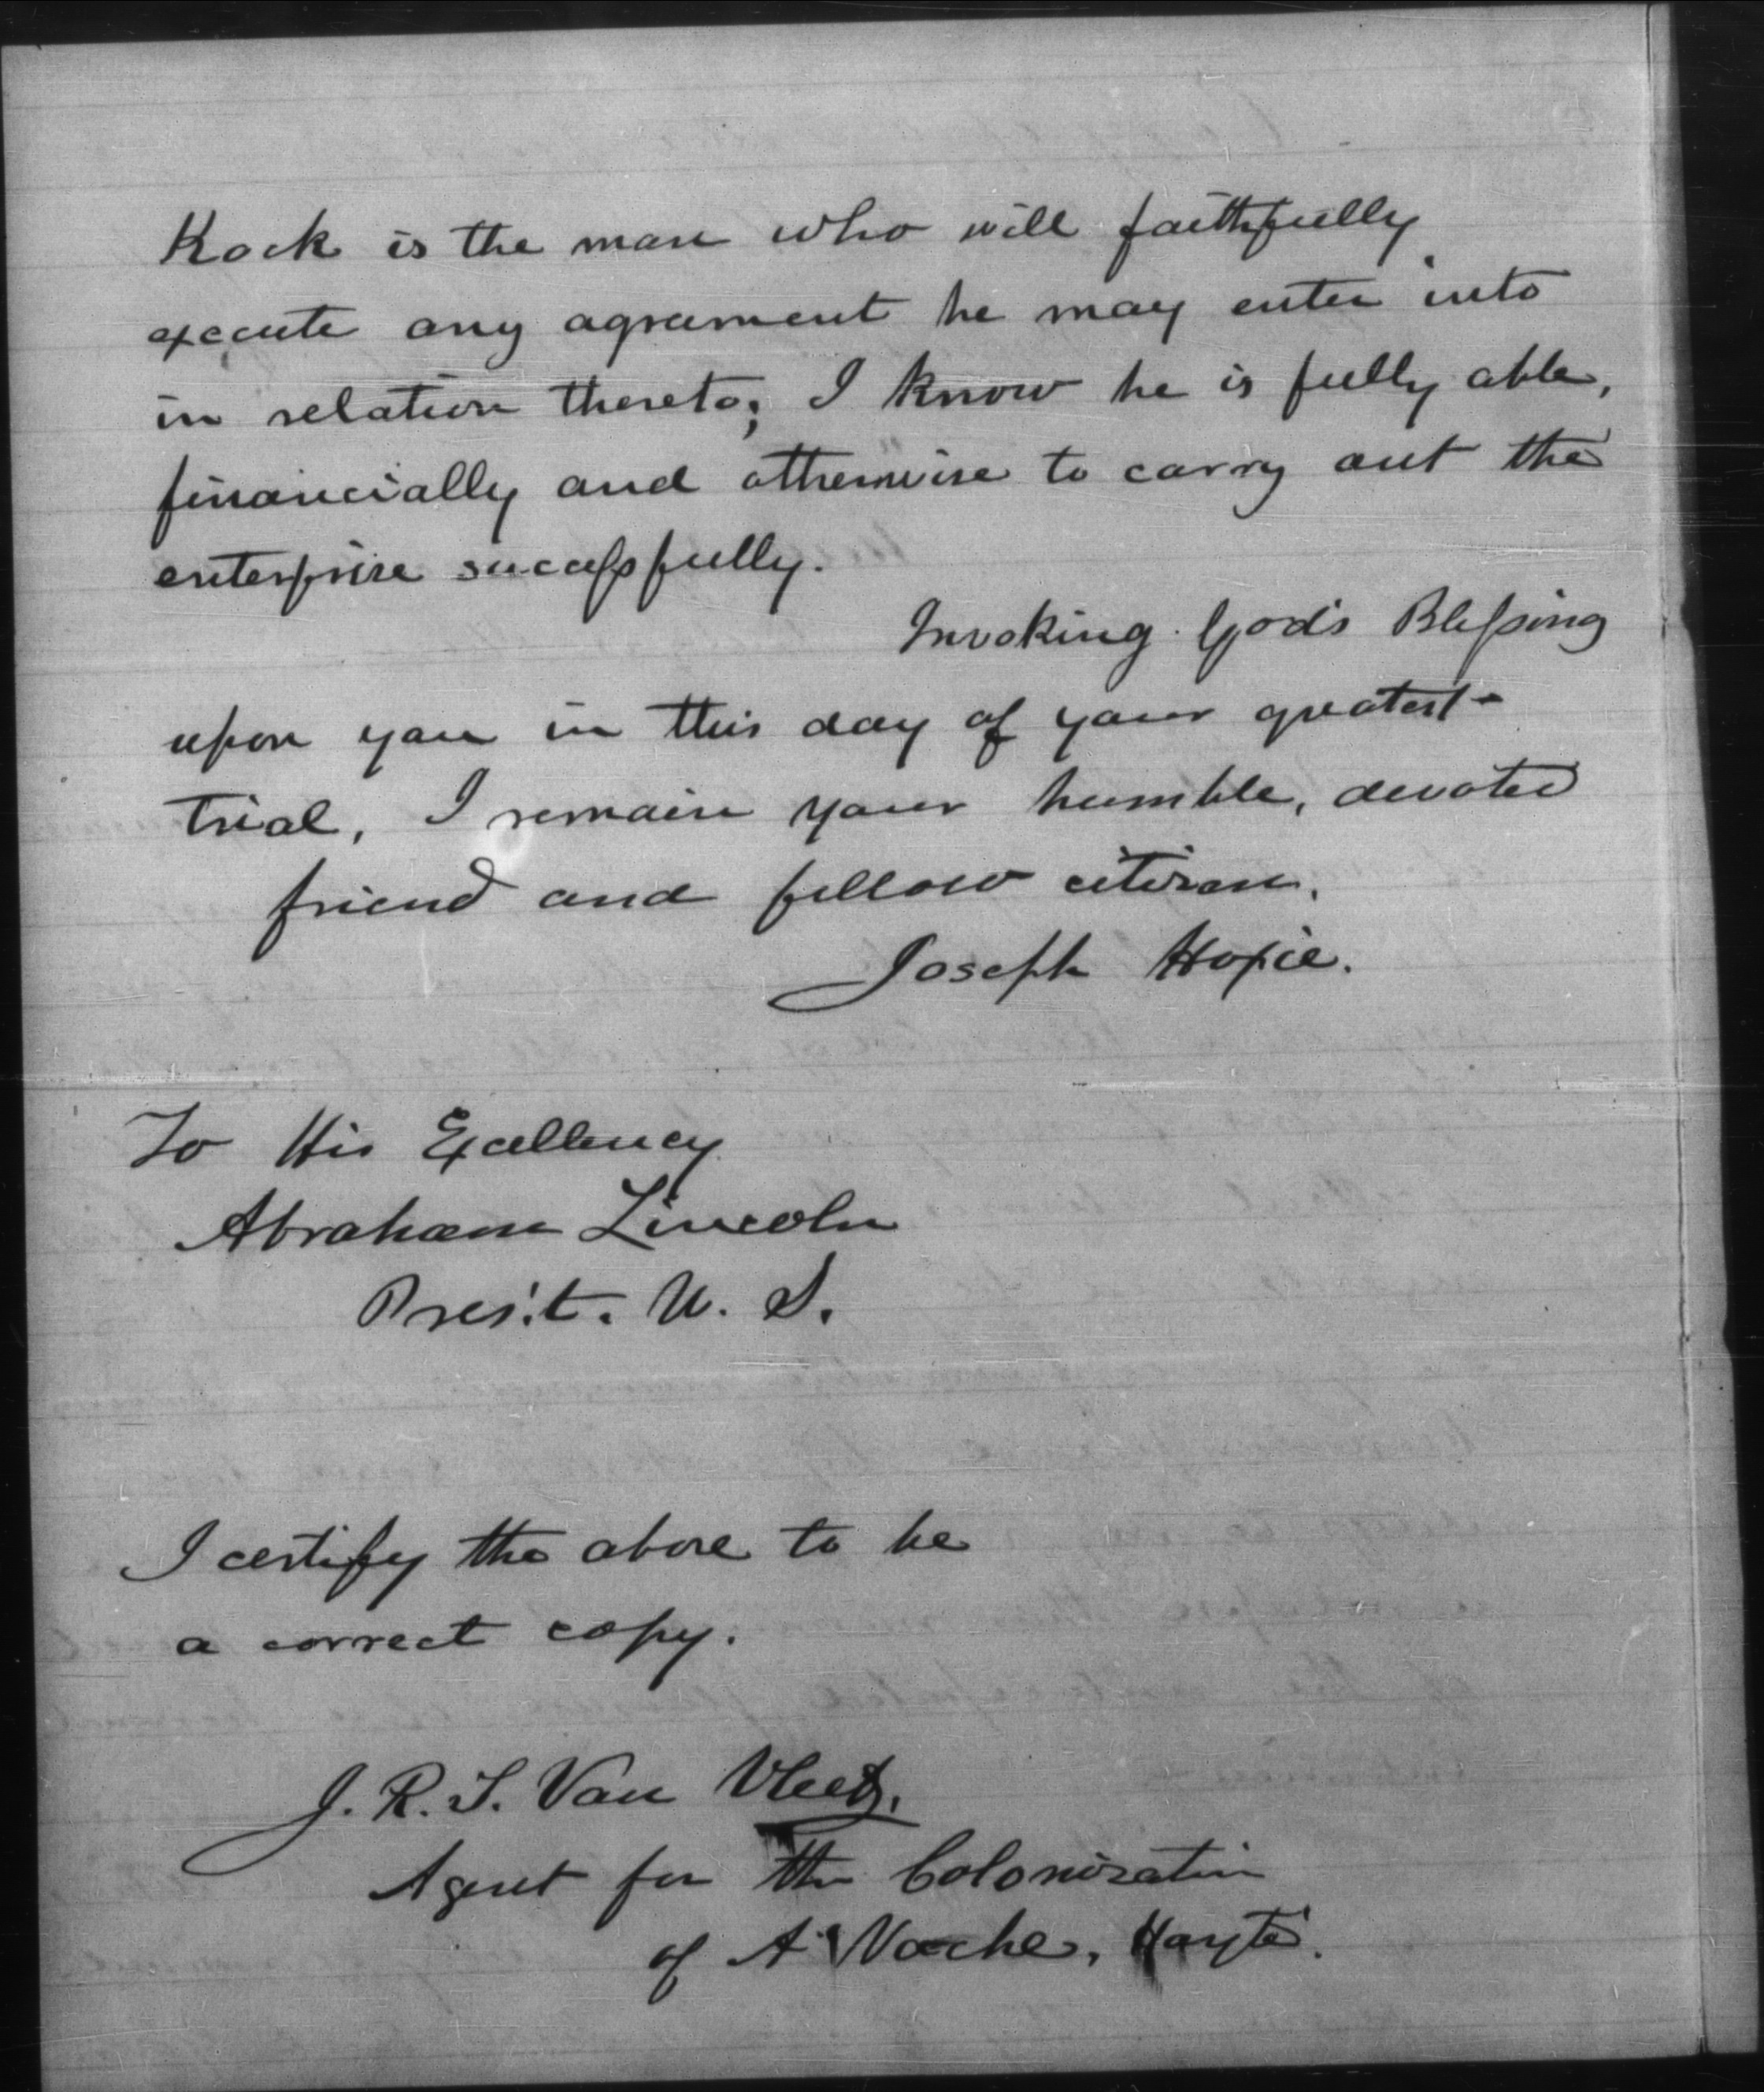 Kock is the man who will faithfully
execute any agreement he may enter into
in relation thereto; I know he is fully able,
financially and otherwise to carry out the
enterprise successfully.
Invoking God's Blessing
upon you in this day of your greatest
trial, I remain your humble, devoted
friend and fellow citizen.
Joseph Hoxie.
To His Excellency
Abraham Lincoln
Pres't. U. S.
I certify the above to be
a correct copy.
J. R. S. Van Vleet,
Agent for the Colonization
of A'Vache, Hayti.